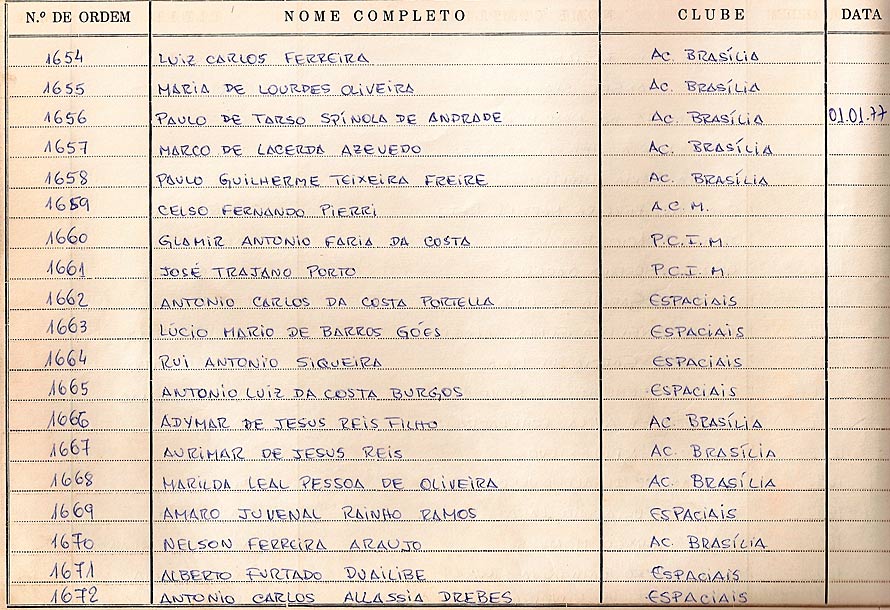 N.º DE ORDEM NOME COMPLETO CLUBE DATA
1654 LUIZ CARLOS FERREIRA AC. BRASÍLIA
1655 MARIA DE LOURDES OLIVEIRA AC. BRASÍLIA
1656 PAULO DE TARSO SPÍNOLA DE ANDRADE AC. BRASÍLIA 01.01.77
1657 MARCO DE LACERDA AZEVEDO AC. BRASÍLIA
1658 PAULO GUILHERME TEIXEIRA FREIRE AC. BRASÍLIA
1659 CELSO FERNANDO PIERRI A.C.M.
1660 GLAMIR ANTONIO FARIA DA COSTA P.C.I.M.
1661 JOSÉ TRAJANO PORTO P.C.I.M.
1662 ANTONIO CARLOS DA COSTA PORTELLA ESPACIAIS
1663 LÚCIO MARIO DE BARROS GÓES ESPACIAIS
1664 RUI ANTONIO SIQUEIRA ESPACIAIS
1665 ANTONIO LUIZ DA COSTA BURGOS ESPACIAIS
1666 ADYMAR DE JESUS REIS FILHO AC. BRASÍLIA
1667 AURIMAR DE JESUS REIS AC. BRASÍLIA
1668 MARILDA LEAL PESSOA DE OLIVEIRA AC. BRASÍLIA
1669 AMARO JUVENAL RAINHO RAMOS ESPACIAIS
1670 NELSON FERREIRA ARAUJO AC. BRASÍLIA
1671 ALBERTO FURTADO DUAILIBE ESPACIAIS
1672 ANTONIO CARLOS ALLASSIA DREBES ESPACIAIS